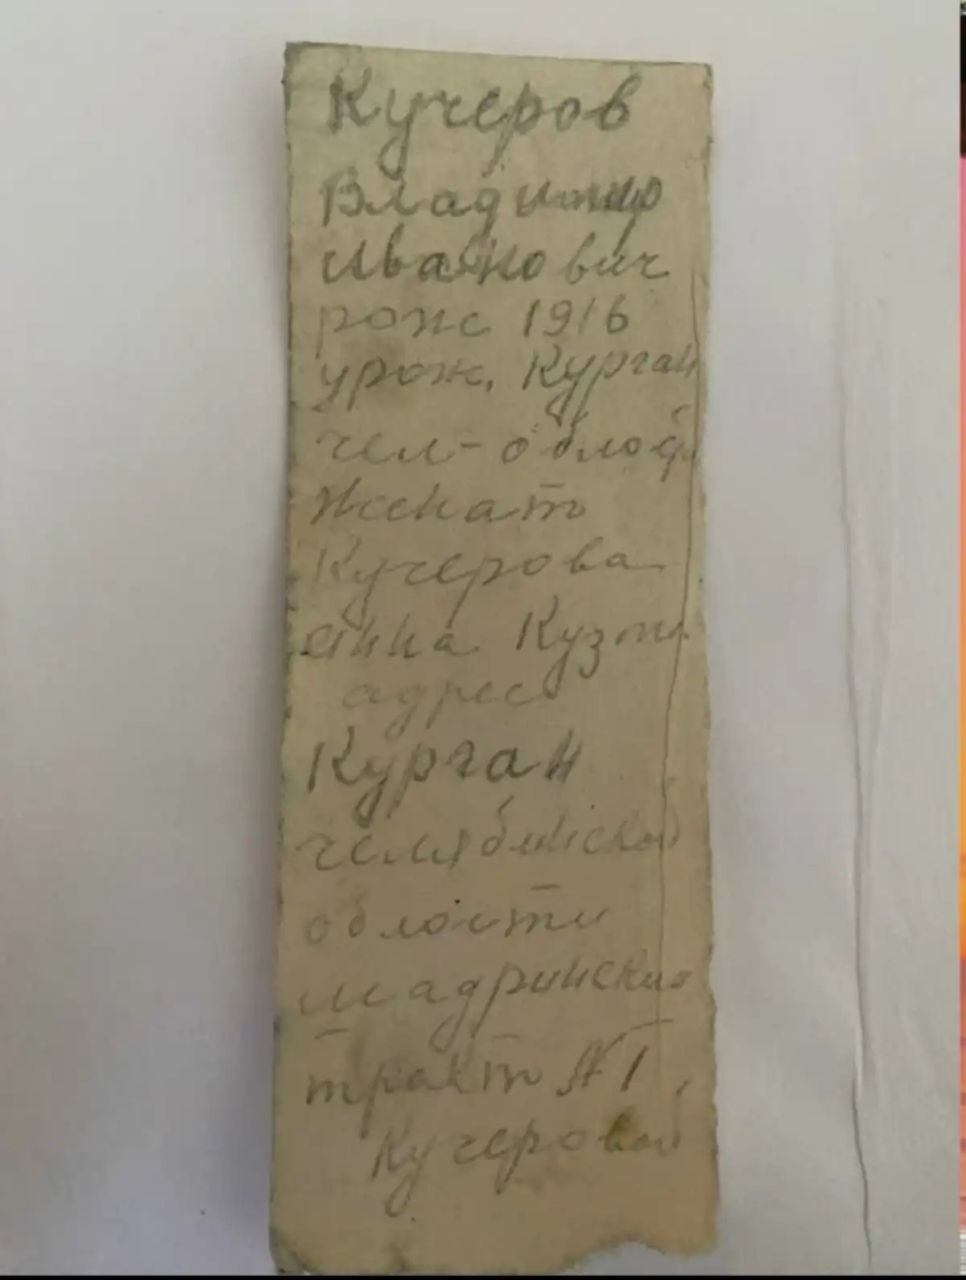 Кучеров
Владимир
Иванович
рож 1916
урож. Курган
чел-облой
женат
Кучерова
Анна Кузми
адрес
Курган
челябинской
области
шадринский
тракт №1,
Кучеровой